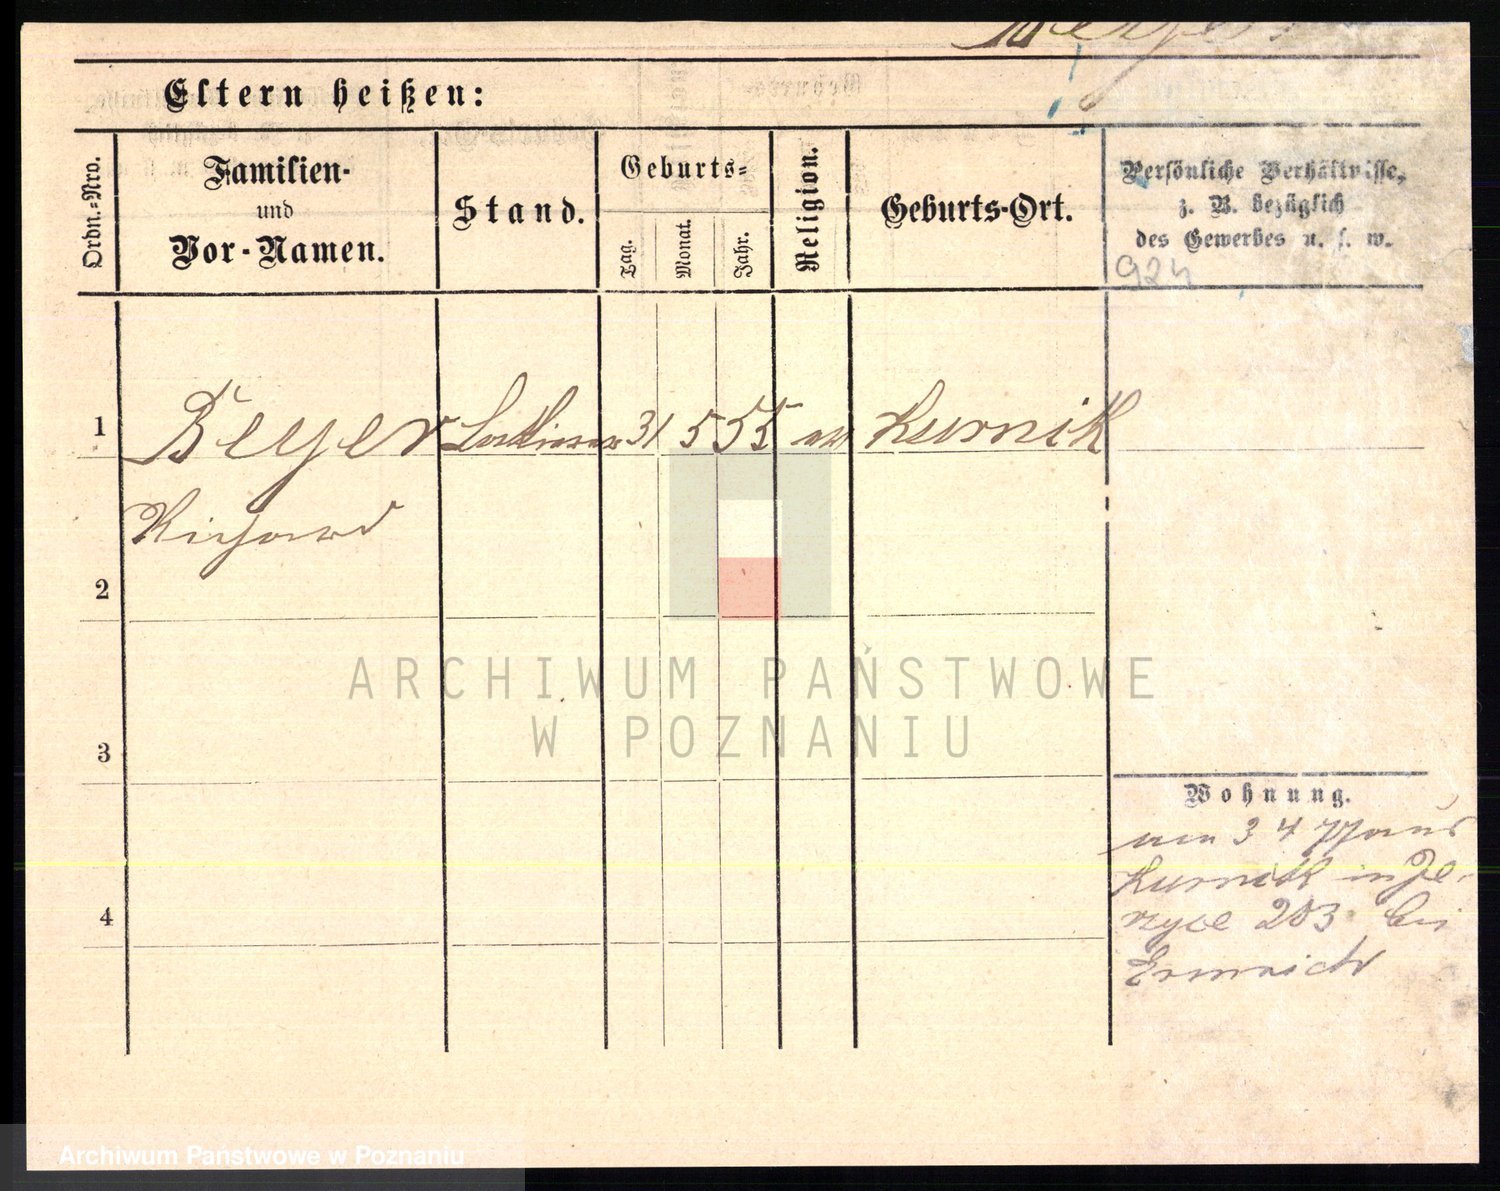 Eltern heißen:
Ordn.-Nro.
Familien-
und
Vor-Namen.
Stand.
Geburts-
Tag.
Monat.
Jahr.
Religion.
Geburts-Ort.
Persönliche Verhältnisse,
z. B. bezüglich
des Gewerbes u. s. w.
924
1 Beyer 31 5 55 Kurnik
Richard
2
3
4
Wohnung.
am 3 4 77 aus
Kurnik in Je-
rzyce 203 bei
ARCHIWUM PAŃSTWOWE
W POZNANIU
Archiwum Państwowe w Poznaniu